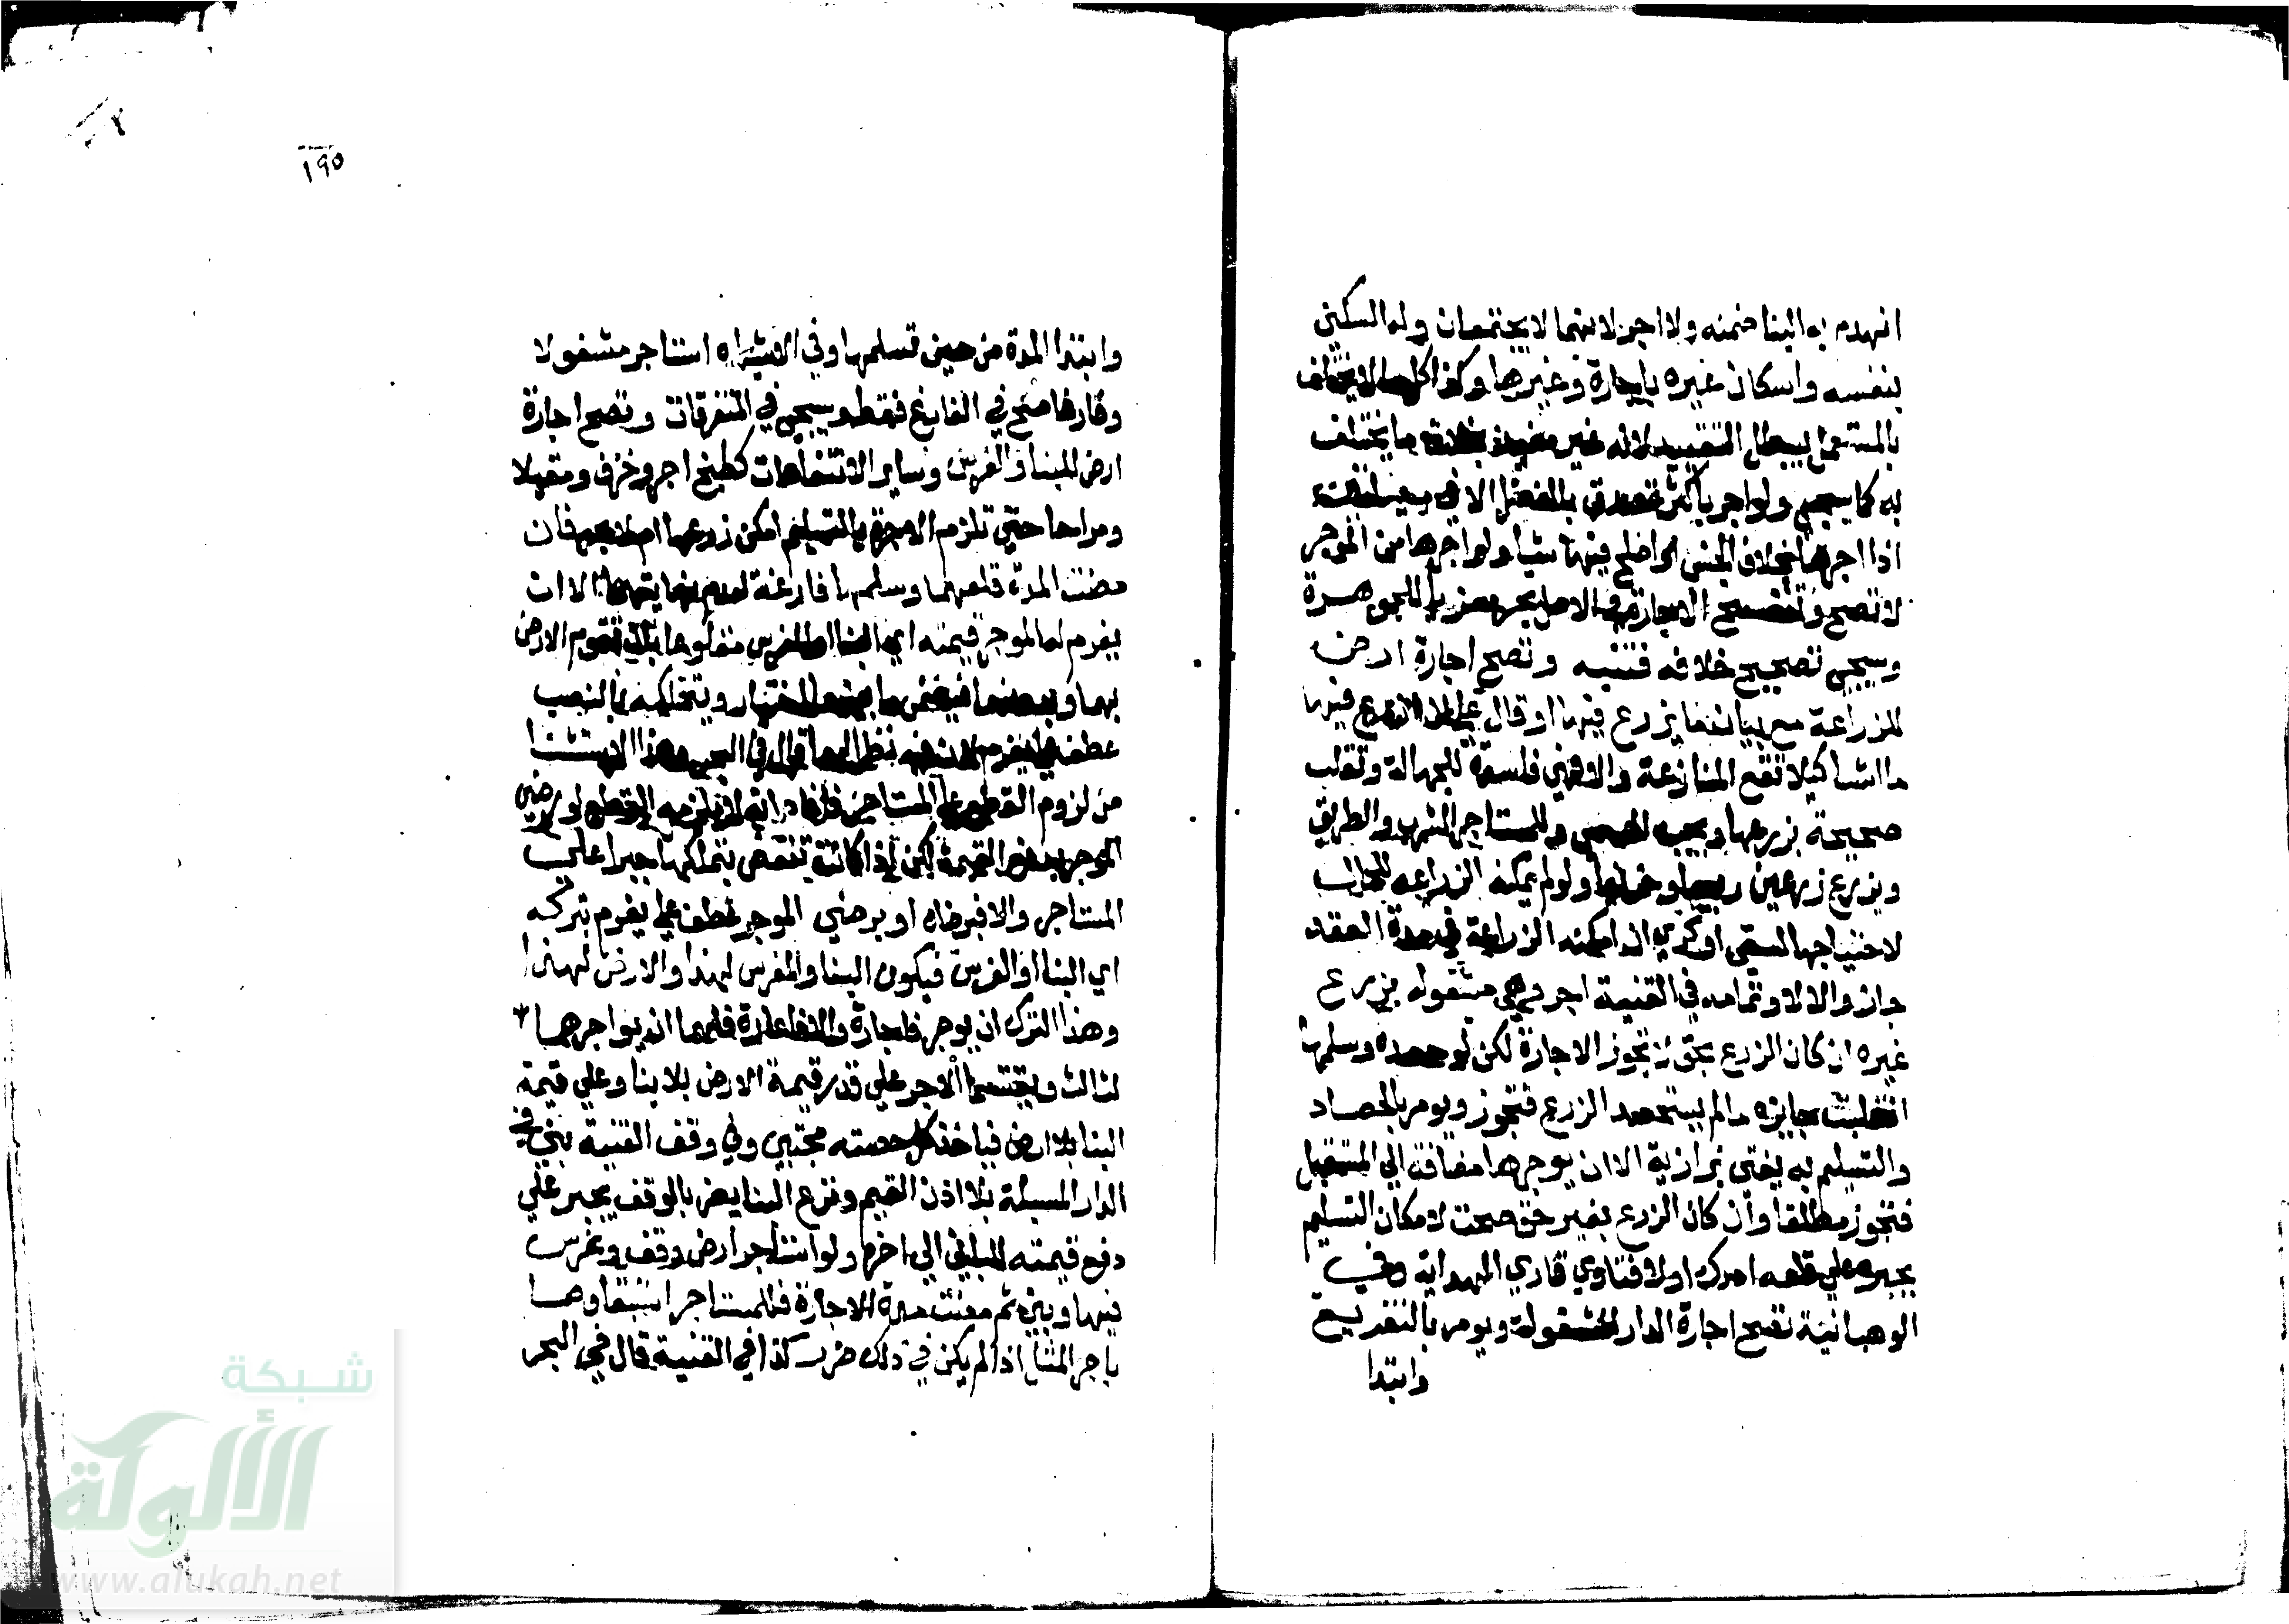 انهدم به البنا ضمنه ولا اجر لانهما لا يجتمعان وله السكني
بنفسه واسكان غيره باجارة وغيرها وكذا كل ما لا يختلف
بالمستعمل يبطل التقييد لانه غير مفيد بخلاف ما يختلف
به كما سيجي ولو اجر باكثر تصدق بالفضل الا في مسالتين
اذا اجرها بخلاف الجنس او اصلح فيها شيا ولو اجرها من الموجر
لا تصح وتنفسخ الاجارة في الاصح بحر معزيا للجوهرة
وسيجي تصحيح خلافه فتنبه وتصح اجارة ارض
للزراعة مع بيان ما يزرع فيها او قال علي ان ازرع فيها
ما اشا كيلا تقع المنازعة والا فهي فاسدة للجهالة وتقلب
صحيحة بزرعها ويجب المسمي وللمستاجر الشرب والطريق
ويزرع زرعين ربيعا وخريفا ولو لم يمكنه الزراعه للحال
لاحتياجها لسقي او كري ان امكنه الزراعة في مدة العقد
جاز والا لا وتمامه في القنية اجر وهي مشغولة بزرع
غيره ان كان الزرع بحق لا تجوز الاجارة لكن لو حصده وسلمها
انقلبت جايزه ما لم يستحصد الزرع فتجوز ويومر بالحصاد
والتسليم به يفتي بزازية الا ان يوجرها مضافة الي المستقبل
فتجوز مطلقا وان كان الزرع بغير حق صحت لامكان التسليم
بجبره علي قلعه ادرك اولا فتاوي قاري الهداية وفي
الوهبانية تصح اجارة الدار المشغولة ويومر بالتفريغ
وابتدا
١٩٥
وابتدا المدة من حين تسلمها وفي الاشباه استاجر مشغولا
وفارغا صح في الفارغ فقط وسيجي في المتفرقات وتصح اجارة
ارض للبنا والغرس وساير الانتفاعات كطبخ اجر وخزف ومقيلا
ومراحا حتي تلزم الاجرة بالتسليم امكن زرعها ام لا بحر فان
مضت المدة قلعهما وسلمها فارغة لعدم نهايتهما الا ان
يغرم له الموجر قيمته اي البنا او الغرس مقلوعا بان تقوم الارض
بهما وبدونهما فيضمن ما بينهما اختيار ويتملكه بالنصب
عطف علي يغرم لان فيه نظر لهما قال في البحر وهذا الاستثنا
من لزوم القطع علي المستاجر فافاد انه لا يلزمه القطع لو رضي
الموجر بدفع القيمة لكن اذا كانت تنقص يتملكها جبرا علي
المستاجر والا فبرضاه او يرضي الموجر عطف علي يغرم بتركه
اي البنا او الغرس فيكون البنا والغرس لهذا والارض لهذا
وهذا الترك ان يوجر فاجارة والا فاعارة فلهما ان يواجرهما
لثالث ويقتسما الاجر علي قدر قيمة الارض بلا بنا وعلي قيمة
البنا بلا ارض فياخذ كل حصته مجتبي وفي وقف القنية بني في
الدار المسبلة بلا اذن القيم ونزع البنا يضر بالوقف يجبر علي
دفع قيمته للباني الي اخره ولو استاجر ارض وقف وغرس
فيها وبني ثم مضت مدة الاجارة فللمستاجر استبقاوهما
باجر المثل اذا لم يكن في ذلك ضرر كذا في القنية قال في البحر
شبكة
الألوكة
www.alukah.net